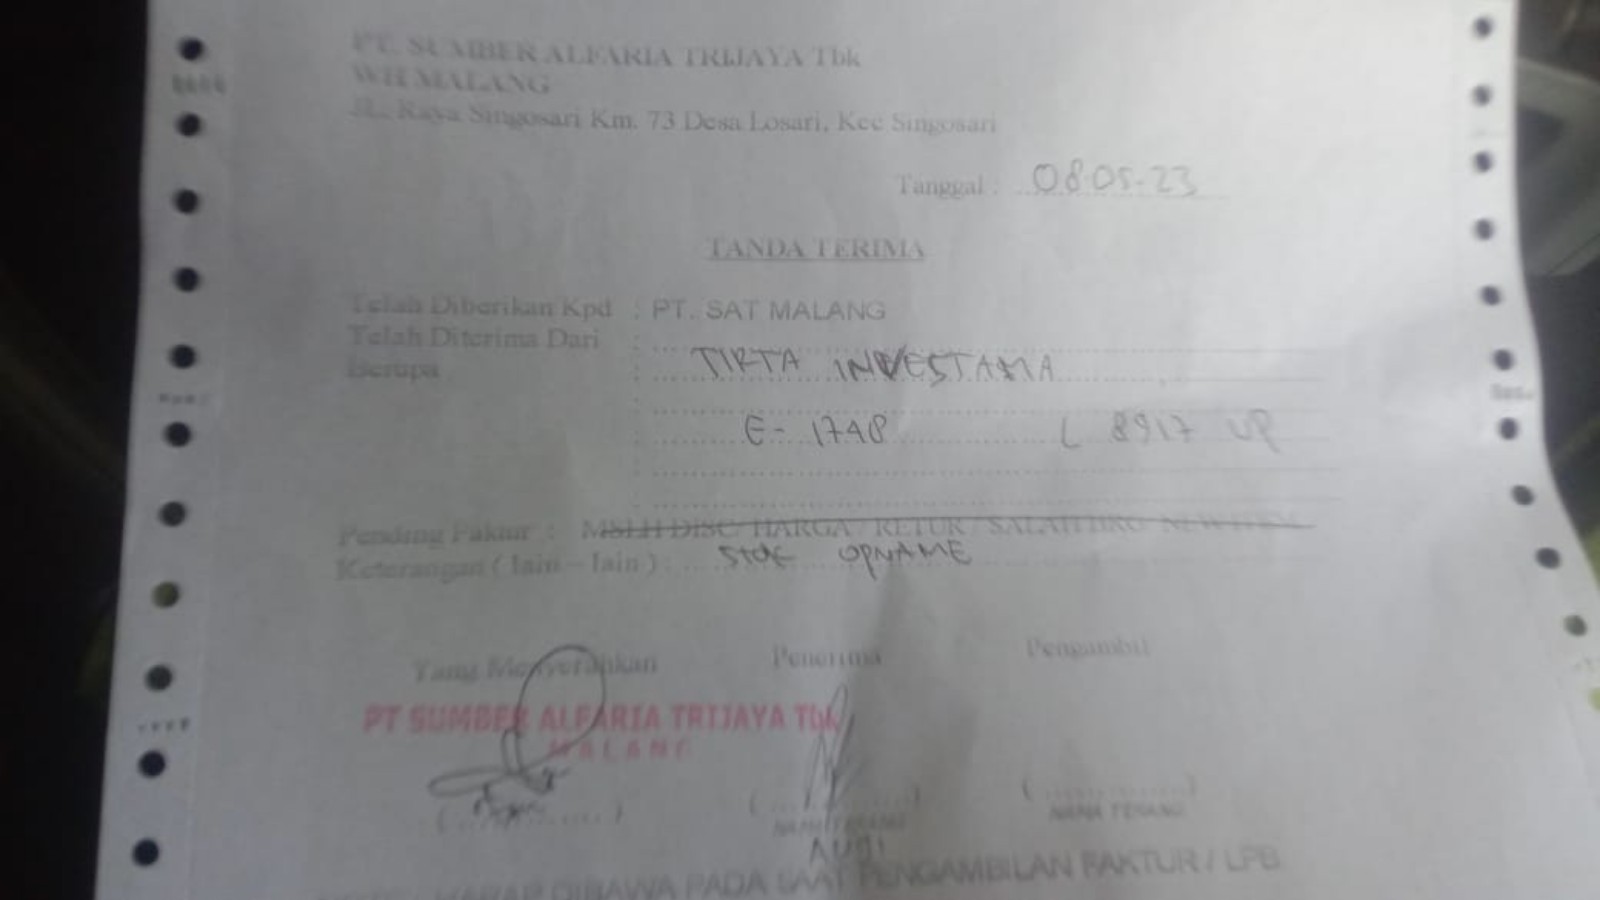 PT. SUMBER ALFARIA TRIJAYA Tbk
WH MALANG
JL. Raya Singosari Km. 73 Desa Losari, Kec Singosari
Tanggal : 08-05-23
TANDA TERIMA
Telah Diberikan Kpd : PT. SAT MALANG
Telah Diterima Dari :
Berupa : TIRTA INVESTAMA
E- 1748 L 8917 UP
Pending Faktur : DISC HARGA / RETUR / SALAH
Keterangan ( lain – lain ) : STOK OPNAME
Yang Menyerahkan Penerima Pengambil
PT SUMBER ALFARIA TRIJAYA Tbk
MALANG
NAMA TERANG NAMA TERANG
HARAP DIBAWA PADA SAAT PENGAMBILAN FAKTUR / LPB